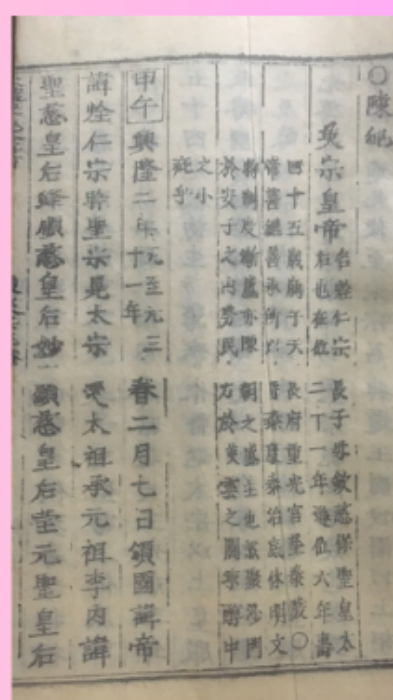 ○陳紀
英宗皇帝
名烇仁宗長子母欽慈保聖皇太
后也在位二十一年遜位六年壽
四十五歲崩于天長府重光宮葬泰陵○
帝善繼善承所以時臻康泰治底休明文
物制度漸盛亦陳朝之盛主也然聚沙門
於安子之山勞民力於映雲之閣寧非中
之小
疵乎
甲午興隆二年元至元三十一年春二月七日頒國諱帝
諱烇仁宗昑聖宗晃太宗煚太祖承元祖李內諱
聖慈皇后 顯慈皇后妙 顯慈皇后 元聖皇后